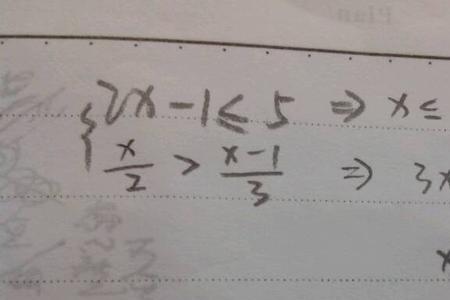 2x - 1 ≤ 5 ⇒ x ≤
x/2 > x-1/3 ⇒ 3x
x